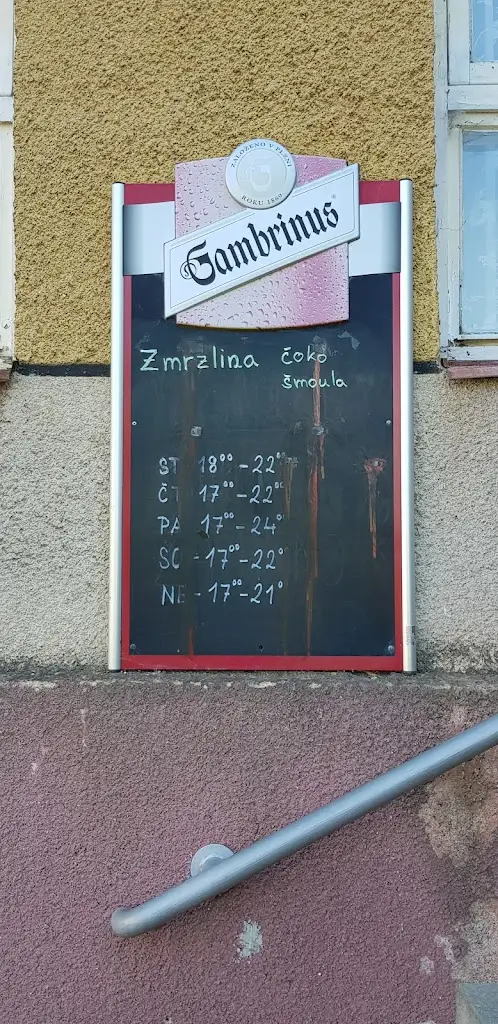 ZALOŽENO V PLZNI
G
ROKU 1869
Gambrinus
Zmrzlina čoko
šmoula
ST 18⁰⁰-22⁰⁰
ČT 17⁰⁰-22⁰⁰
PA 17⁰⁰-24⁰
SO -17⁰⁰-22⁰
NE -17⁰⁰-21⁰